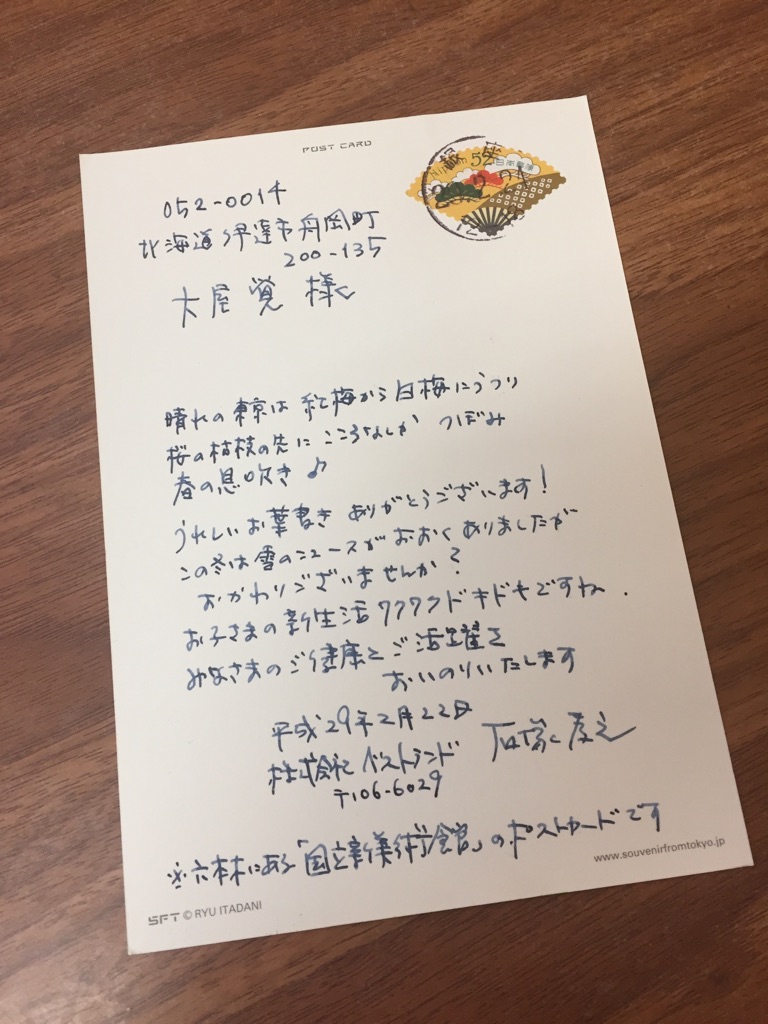 POST CARD
銀座
52
日本郵便
052-0014
北海道伊達市舟岡町
200-135
大屋 覚 様
晴れの東京は 紅梅から白梅にうつり
桜の枯枝の先に こころなしか つぼみ
春の息吹き♪
うれしいお葉書き ありがとうございます!
この冬は雪のニュースがおおくありましたが
おかわりございませんか?
お子さまの新生活ワクワクドキドキですね.
みなさまのご健康とご活躍を
おいのりいたします
平成29年2月22日
株式会社 ベストランド 石塚孝之
〒106-6029
※六本木にある「国立新美術館」のポストカードです
www.souvenirfromtokyo.jp
SFT © RYU ITADANI